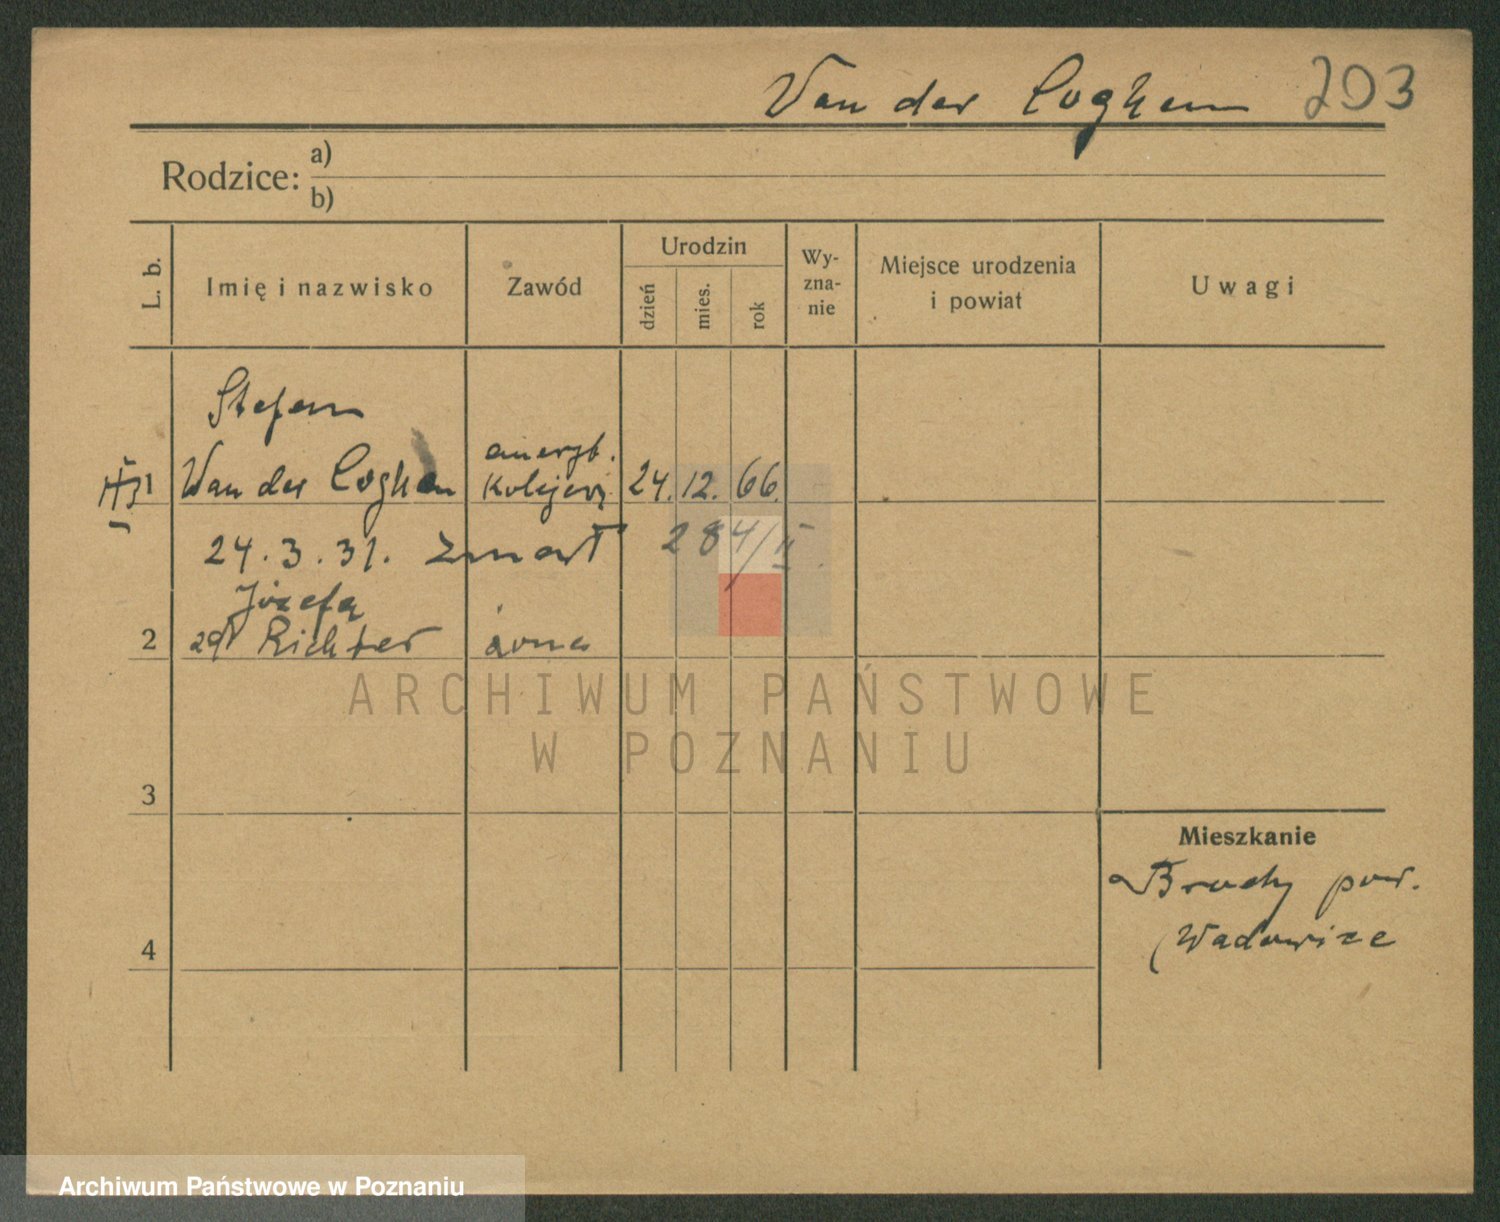 Van der Coghen 203
Rodzice: a)
b)
L. b.
Imię i nazwisko
Zawód
Urodzin
dzień
mies.
rok
Wy-
zna-
nie
Miejsce urodzenia
i powiat
Uwagi
Stefan
1 Van der Coghen emeryt. Kolejowy 24. 12. 66.
24.3.31. zmarł 284/II
Józefa
2 Richter żona
3
4
Mieszkanie
Brody pow.
Wadowice
ARCHIWUM PAŃSTWOWE
W POZNANIU
Archiwum Państwowe w Poznaniu